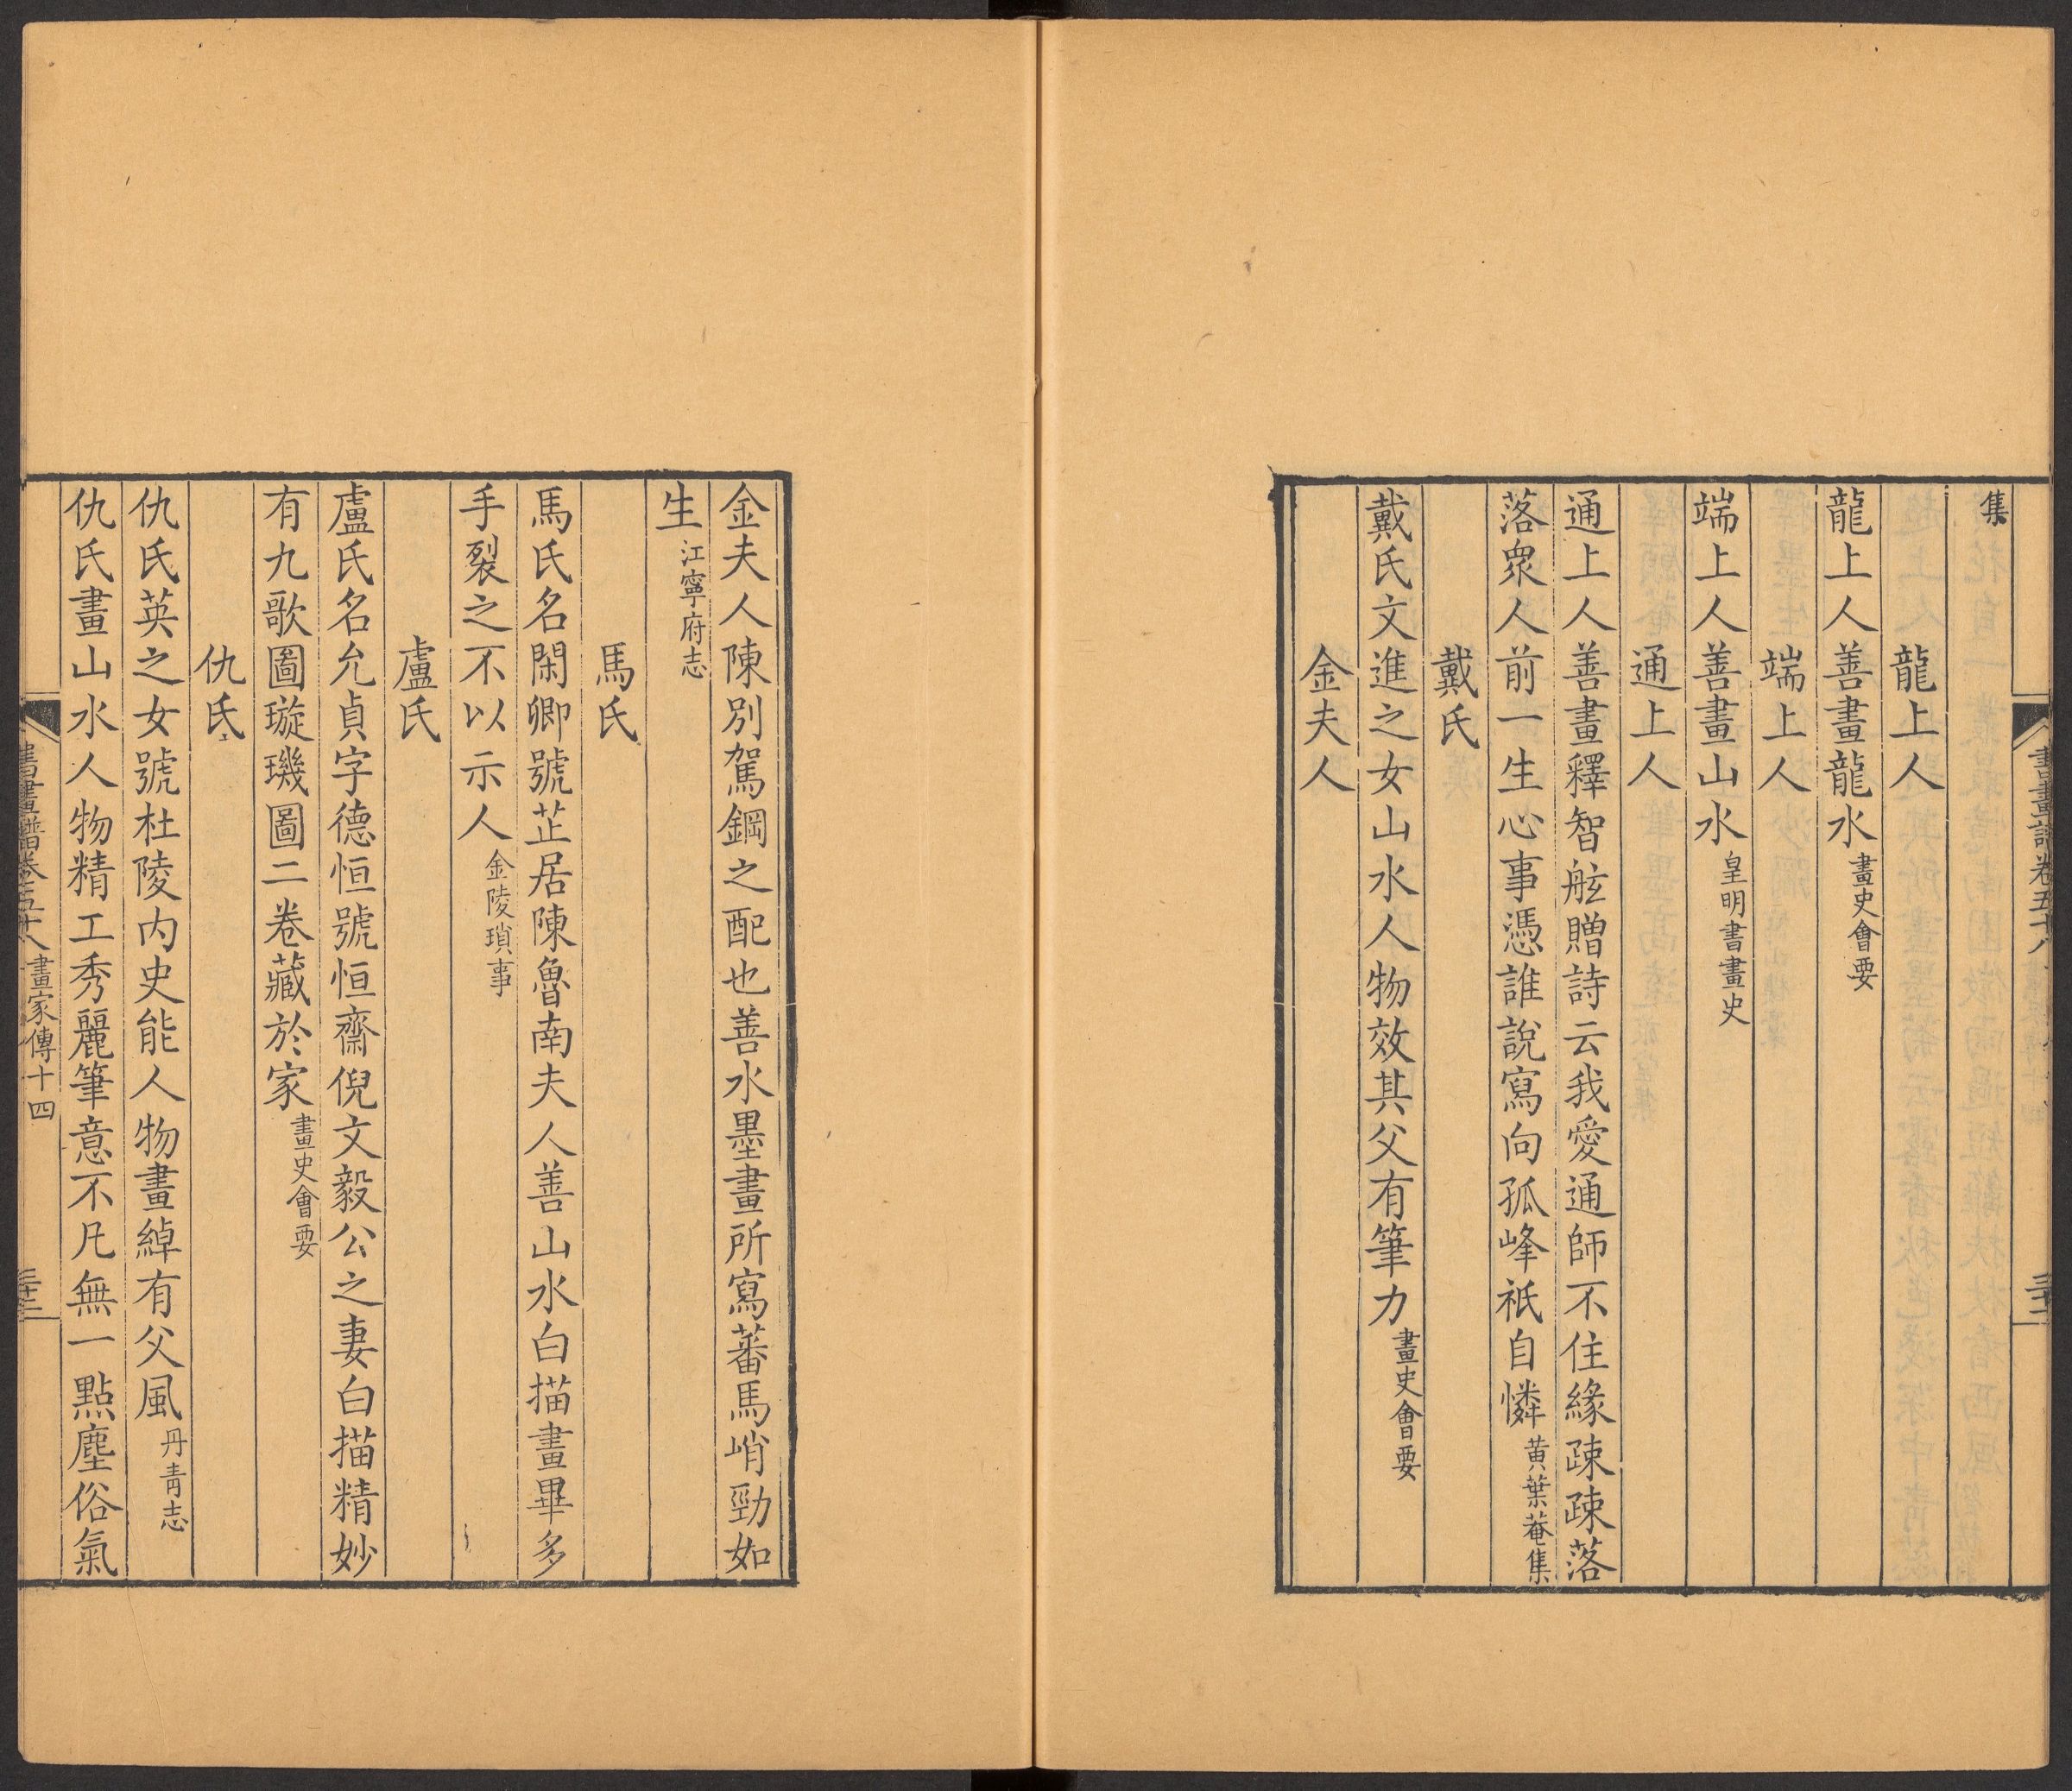 集
龍上人
龍上人善畫龍水畫史會要
端上人
端上人善畫山水皇明書畫史
通上人
通上人善畫釋智舷贈詩云我愛通師不住緣疎疎落
落衆人前一生心事憑誰說寫向孤峰祇自憐黄葉菴集
戴氏
戴氏文進之女山水人物效其父有筆力畫史會要
金夫人
金夫人陳別駕鋼之配也善水墨畫所寫蕃馬峭勁如
生江寧府志
馬氏
馬氏名閑卿號芷居陳魯南夫人善山水白描畫畢多
手裂之不以示人金陵瑣事
盧氏
盧氏名允貞字德恒號恒齋倪文毅公之妻白描精妙
有九歌圖璇璣圖二卷藏於家畫史會要
仇氏
仇氏英之女號杜陵内史能人物畫綽有父風丹青志
仇氏畫山水人物精工秀麗筆意不凡無一點塵俗氣
書畫譜卷五十八畫家傳十四